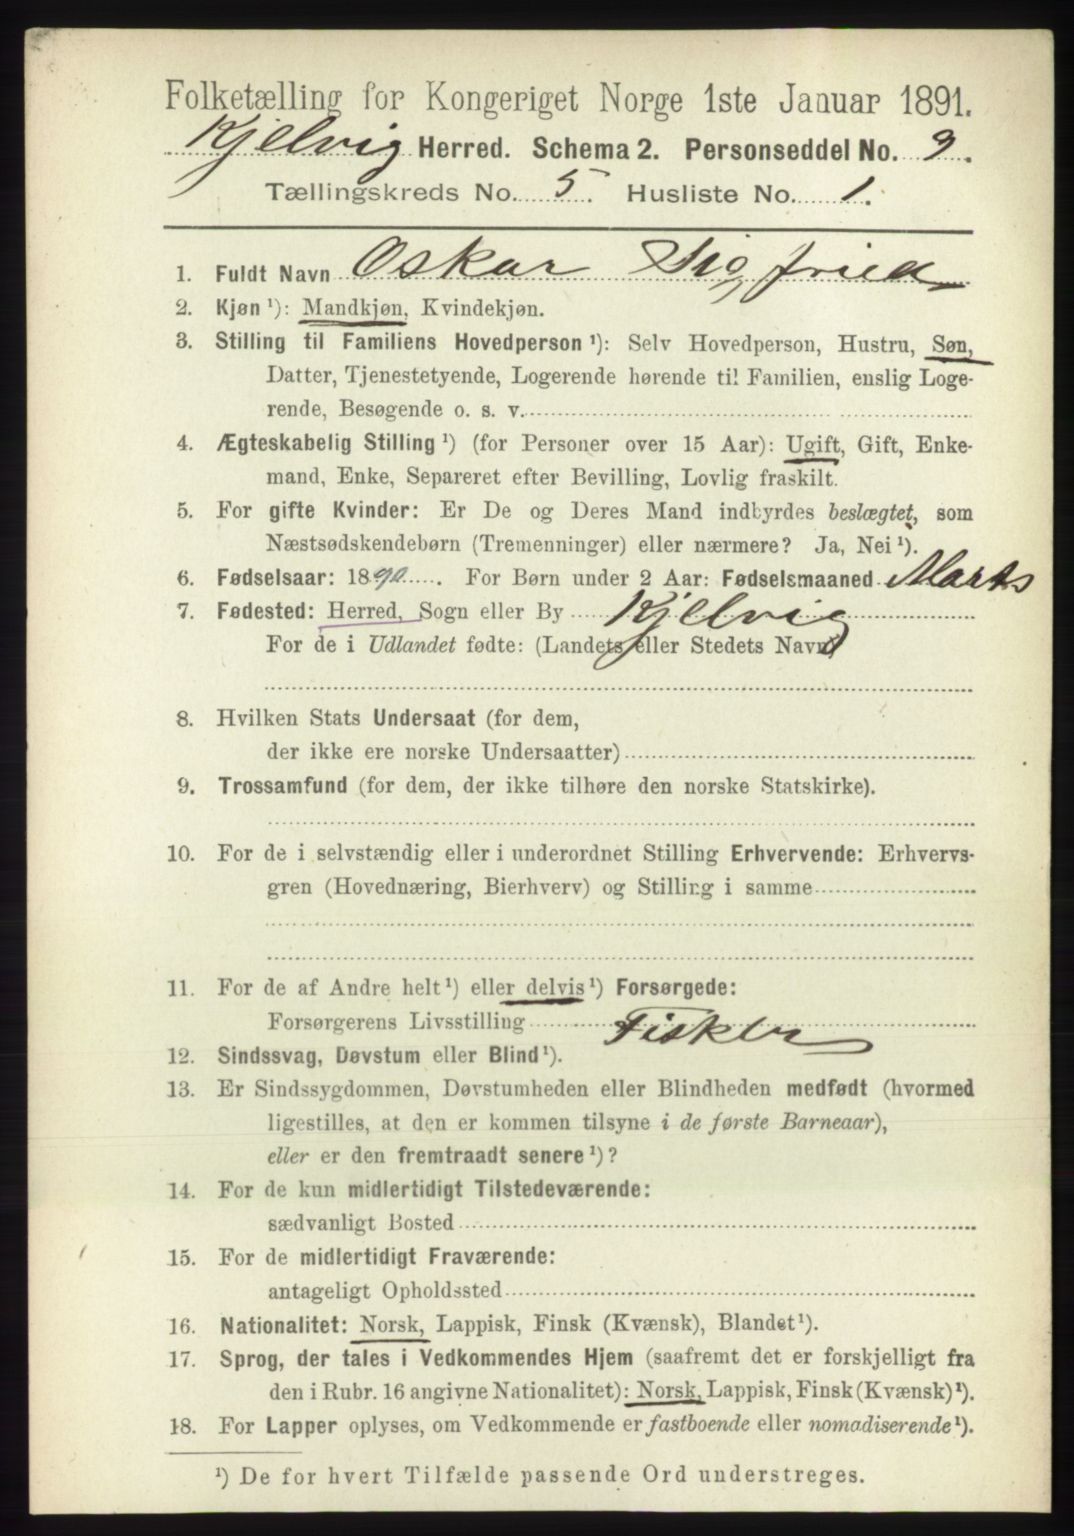 Folketælling for Kongeriget Norge 1ste Januar 1891.
Kjelvig Herred. Schema 2. Personseddel No. 9.
Tællingskreds No. 5. Husliste No. 1.
1. Fuldt Navn Oskar Sigfried
2. Kjøn ¹): Mandkjøn, Kvindekjøn.
3. Stilling til Familiens Hovedperson ¹): Selv Hovedperson, Hustru, Søn,
Datter, Tjenestetyende, Logerende hørende til Familien, enslig Loge-
rende, Besøgende o. s. v.
4. Ægteskabelig Stilling ¹) (for Personer over 15 Aar): Ugift, Gift, Enke-
mand, Enke, Separeret efter Bevilling, Lovlig fraskilt.
5. For gifte Kvinder: Er De og Deres Mand indbyrdes beslægtet, som
Næstsødskendebørn (Tremenninger) eller nærmere? Ja, Nei ¹).
6. Fødselsaar: 1890. For Børn under 2 Aar: Fødselsmaaned Marts
7. Fødested: Herred, Sogn eller By Kjelvig
For de i Udlandet fødte: (Landets eller Stedets Navn)
8. Hvilken Stats Undersaat (for dem,
der ikke ere norske Undersaatter)
9. Trossamfund (for dem, der ikke tilhøre den norske Statskirke).
10. For de i selvstændig eller i underordnet Stilling Erhvervende: Erhvervs-
gren (Hovednæring, Bierhverv) og Stilling i samme
11. For de af Andre helt ¹) eller delvis ¹) Forsørgede:
Forsørgerens Livsstilling Fisker
12. Sindssvag, Døvstum eller Blind ¹).
13. Er Sindssygdommen, Døvstumheden eller Blindheden medfødt (hvormed
ligestilles, at den er kommen tilsyne i de første Barneaar),
eller er den fremtraadt senere ¹)?
14. For de kun midlertidigt Tilstedeværende:
sædvanligt Bosted
15. For de midlertidigt Fraværende:
antageligt Opholdssted
16. Nationalitet: Norsk, Lappisk, Finsk (Kvænsk), Blandet ¹).
17. Sprog, der tales i Vedkommendes Hjem (saafremt det er forskjelligt fra
den i Rubr. 16 angivne Nationalitet): Norsk, Lappisk, Finsk (Kvænsk) ¹).
18. For Lapper oplyses, om Vedkommende er fastboende eller nomadiserende ¹).
¹) De for hvert Tilfælde passende Ord understreges.